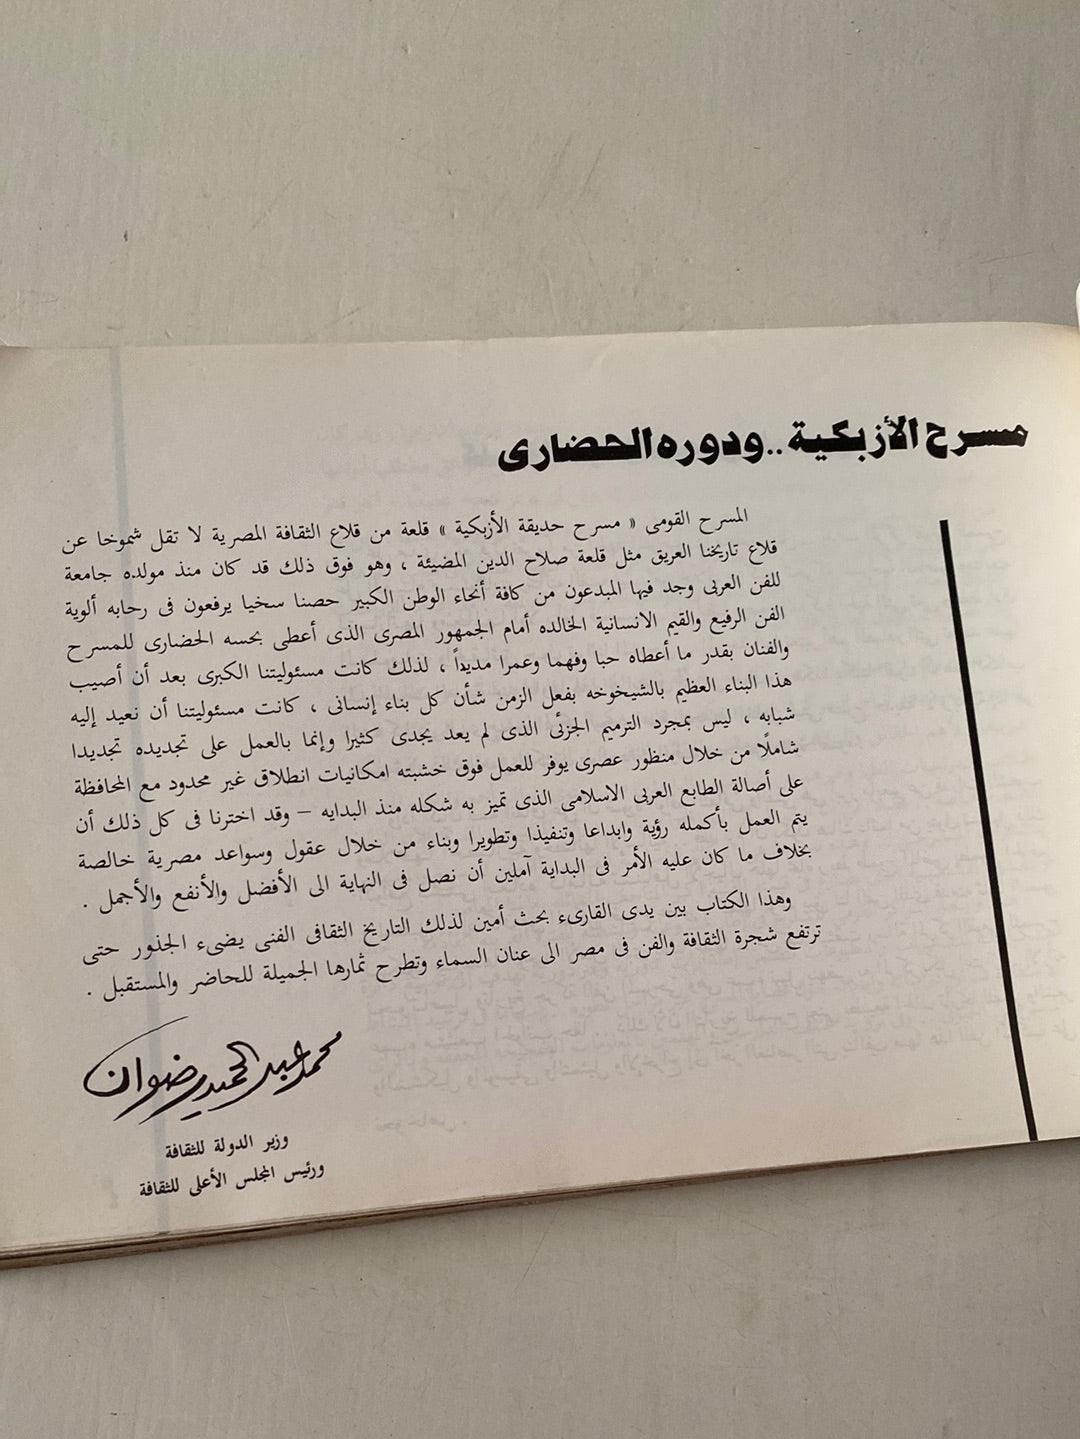 مسرح الأزبكية .. ودوره الحضارى
المسرح القومى « مسرح حديقة الأزبكية » قلعة من قلاع الثقافة المصرية لا تقل شموخا عن
قلاع تاريخنا العريق مثل قلعة صلاح الدين المضيئة ، وهو فوق ذلك قد كان منذ مولده جامعة
للفن العربى وجد فيها المبدعون من كافة أنحاء الوطن الكبير حصنا سخيا يرفعون فى رحابه ألوية
الفن الرفيع والقيم الانسانية الخالده أمام الجمهور المصرى الذى أعطى بحسه الحضارى للمسرح
والفنان بقدر ما أعطاه حبا وفهما وعمرا مديداً ، لذلك كانت مسئوليتنا الكبرى بعد أن أصيب
هذا البناء العظيم بالشيخوخه بفعل الزمن شأن كل بناء إنسانى ، كانت مسئوليتنا أن نعيد إليه
شبابه ، ليس بمجرد الترميم الجزئى الذى لم يعد يجدى كثيرا وإنما بالعمل على تجديده تجديدا
شاملًا من خلال منظور عصرى يوفر للعمل فوق خشبته امكانيات انطلاق غير محدود مع المحافظة
على أصالة الطابع العربى الاسلامى الذى تميز به شكله منذ البدايه – وقد اخترنا فى كل ذلك أن
يتم العمل بأكمله رؤية وابداعا وتنفيذا وتطويرا وبناء من خلال عقول وسواعد مصرية خالصة
بخلاف ما كان عليه الأمر فى البداية آملين أن نصل فى النهاية الى الأفضل والأنفع والأجمل .
وهذا الكتاب بين يدى القارىء بحث أمين لذلك التاريخ الثقافى الفنى يضىء الجذور حتى
ترتفع شجرة الثقافة والفن فى مصر الى عنان السماء وتطرح ثمارها الجميلة للحاضر والمستقبل .
محمد عبد الحميد رضوان
وزير الدولة للثقافة
ورئيس المجلس الأعلى للثقافة